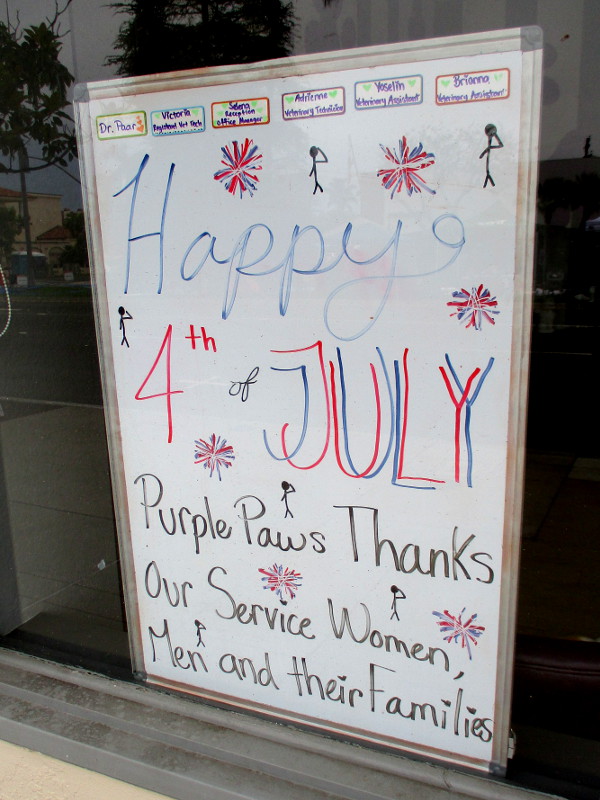 Dr. Paar
Victoria
Registered Vet Tech
Selena
Reception
Office Manager
Adrienne
Veterinary Technician
Yoselin
Veterinary Assistant
Brianna
Veterinary Assistant
Happy
4th of JULY
Purple Paws Thanks
Our Service Women,
Men and their Families